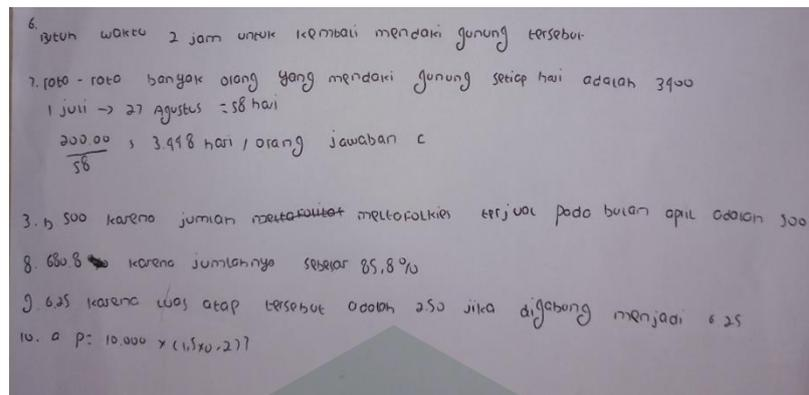 6.
Butuh waktu 2 jam untuk kembali mendaki gunung tersebut.
7. rata - rata banyak orang yang mendaki gunung setiap hari adalah 3400
1 juli -> 27 Agustus = 58 hari
200.00
58
= 3.448 hari / orang jawaban c
3. b 500 karena jumlah mellarolkies terjual pada bulan april adalah 500
8. 680.8 karena jumlahnya sebesar 85,8%
9. 6.25 karena luas atap tersebut adalah 250 jika digabung menjadi 6 25
10. a p = 10.000 x (1,5x0.2)7